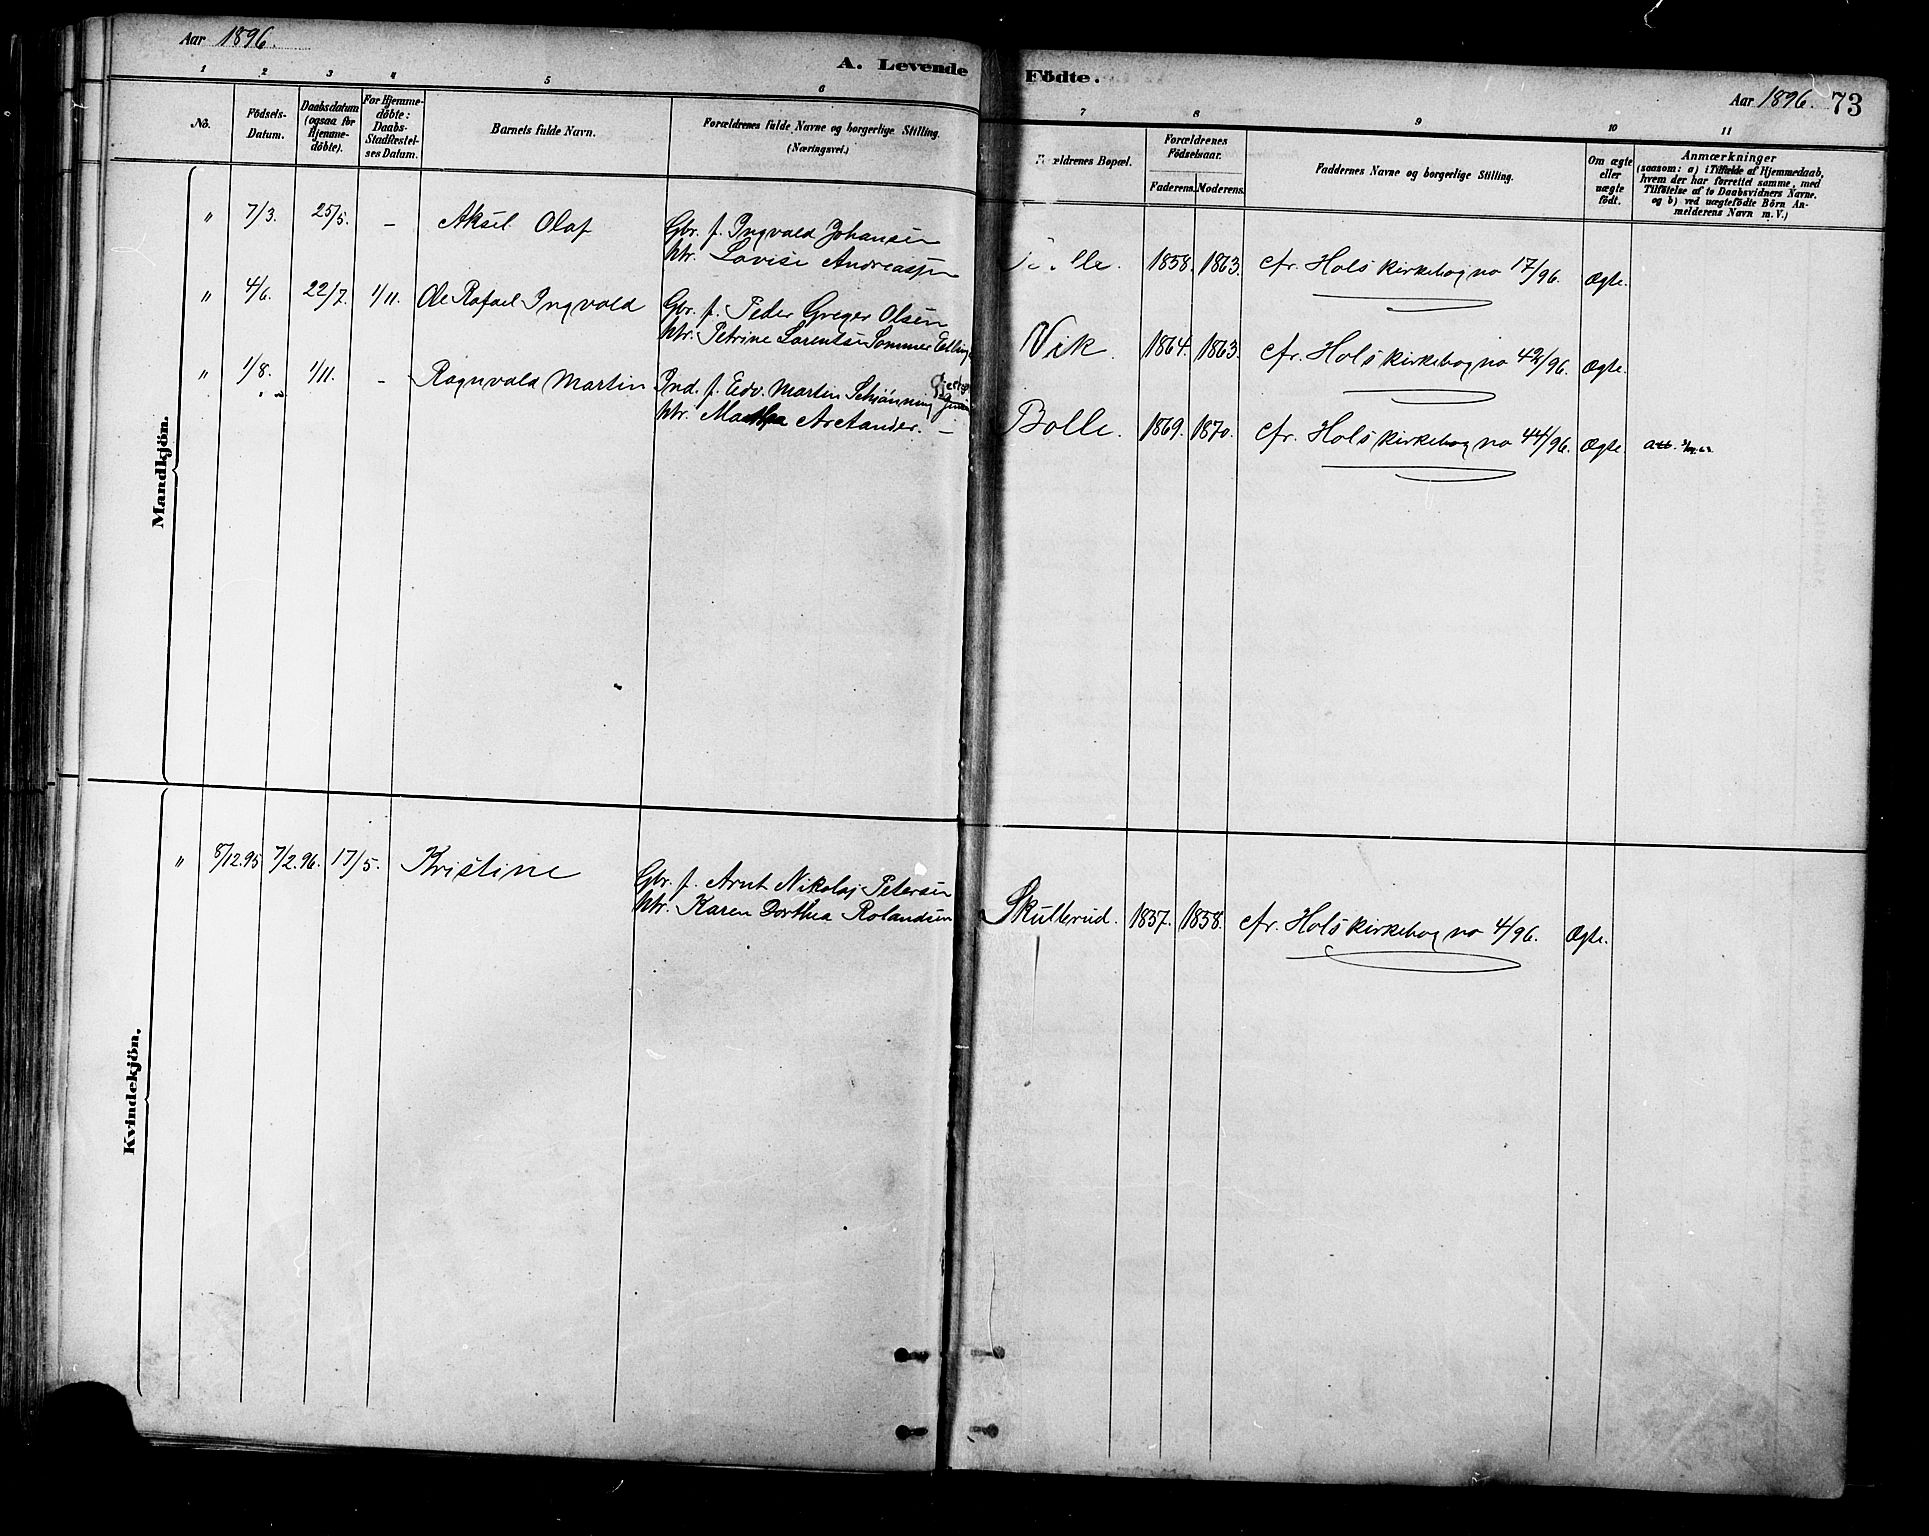 Aar 1896.
A. Levende Födte.
Aar 1896. 73
1 2 3 4 5 6 7 8 9 10 11
No.
Födsels-Datum.
Daabsdatum (ogsaa for Hjemme-döbte).
For Hjemme-döbte: Daabs-Stadfæstel-ses Datum.
Barnets fulde Navn.
Forældrenes fulde Navne og borgerlige Stilling.
(Næringsvei.)
Forældrenes Bopæl.
Forældrenes Födselsaar.
Faderens. Moderens.
Faddernes Navne og borgerlige Stilling.
Om ægte eller uægte födt.
Anmærkninger
(saasom: a) i Tilfælde af Hjemmedaab,
hvem der har forrettet samme, med
Tilföielse af to Daabsvidners Navne.
og b) ved uægtefödte Börn An-
melderens Navn m. V.)
Mandkjön.
" 7/3. 25/5. - Aksel Olaf Gbr. f. Ingvald Johansen 1858. 1863. cfr. Hols kirkebog no 17/96. Ægte.
htr. Lovise Andreasen
" 4/6. 22/7. 1/11. Ole Rafael Ingvald Gbr. f. Peder Greger Olsen Vik. 1864. 1863. cfr. Hols kirkebog no 42/96. Ægte.
htr. Petrine Lorentse Sommer
" 1/8. 1/11. - Ragnvald Martin Ind. f. Edv. Martin Schjønning Bolle. 1869. 1870. cfr. Hols kirkebog no 44/96. Ægte. att.
htr. Martha Arctander. -
Kvindekjön.
" 8/12.95 7/2.96. 17/5. Kristine Gbr. f. Arnt Nikolaj Petersen Skullerud. 1857. 1858. cfr. Hols kirkebog no 4/96. Ægte.
htr. Karen Dorthea Rolandsen